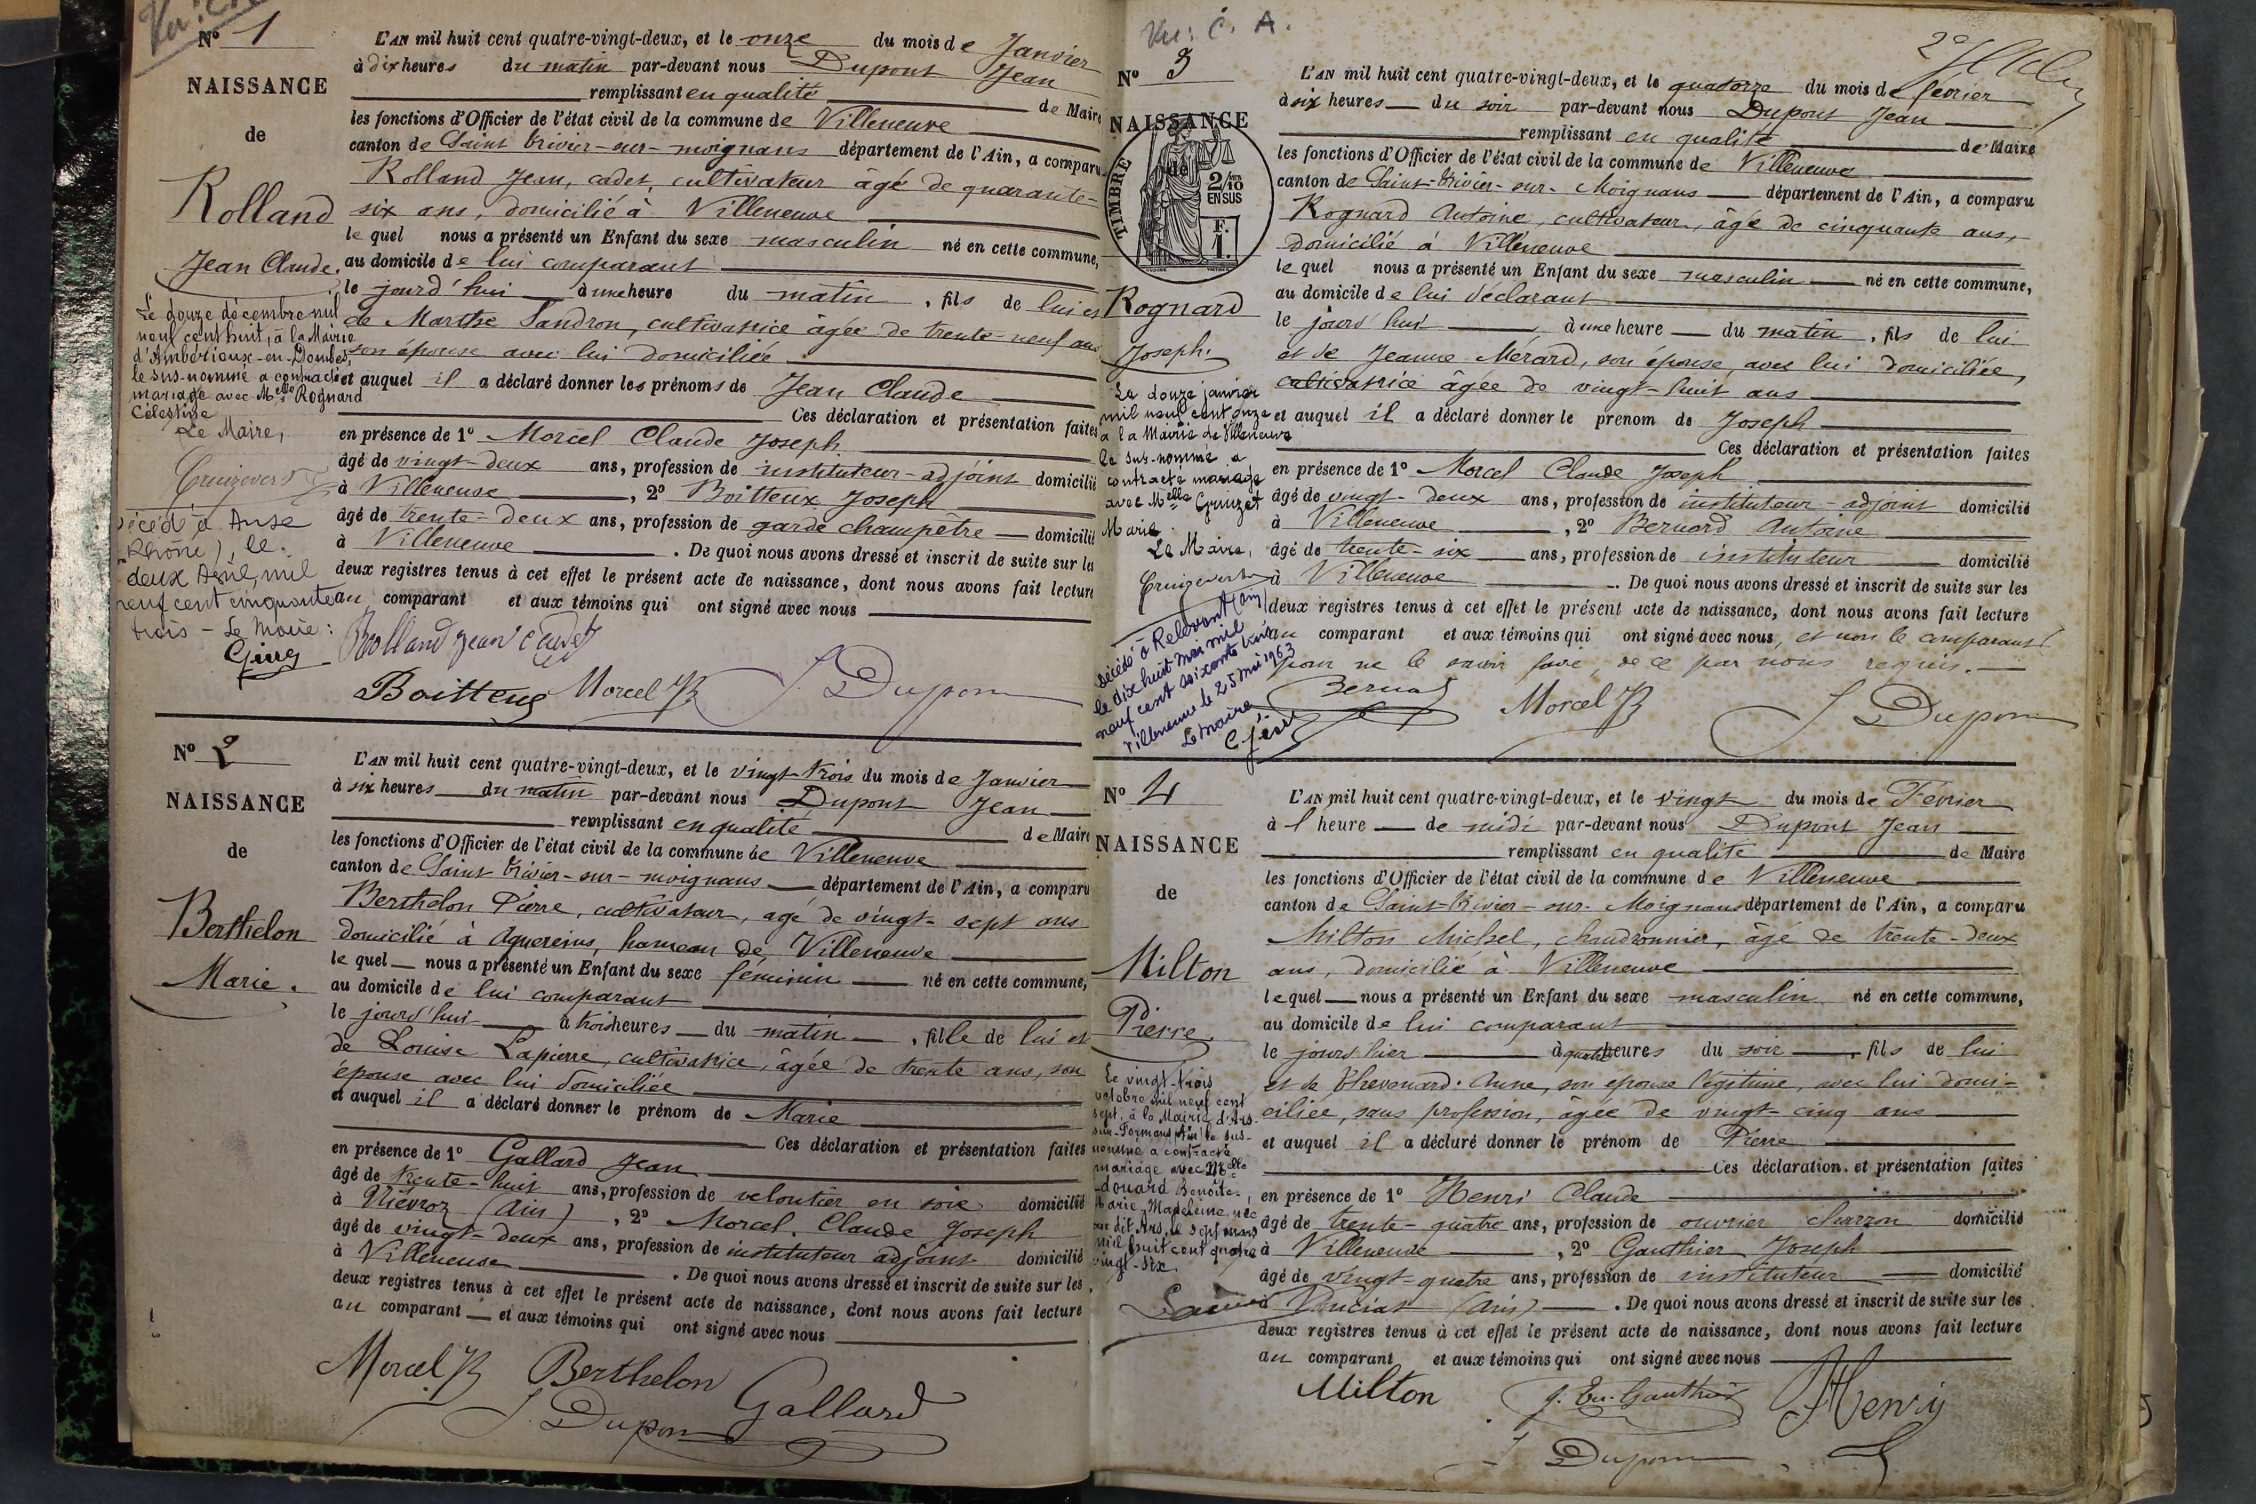 Vu: C. A.
N° 1
NAISSANCE
de
Rolland
Jean Claude.
Le douze décembre mil
neuf cent huit, à la Mairie
d'Ambérieux-en-Dombes
le sus-nommé a contracté
mariage avec Melle Rognard
Célestine
Le Maire,
Décédé à Anse
(Rhône), le
deux Avril mil
neuf cent cinquante
trois - Le Maire:
L'AN mil huit cent quatre-vingt-deux, et le onze du mois de Janvier
à dix heures du matin par-devant nous Dupont Jean
remplissant en qualité de Maire
les fonctions d'Officier de l'état civil de la commune de Villeneuve
canton de Saint Trivier-sur-moignans département de l'Ain, a comparu
Rolland Jean, cadet, cultivateur âgé de quarante-
six ans, domicilié à Villeneuve
le quel nous a présenté un Enfant du sexe masculin né en cette commune,
au domicile de lui comparant
le jourd'hui à une heure du matin, fils de lui et
de Marthe Sandron, cultivatrice âgée de trente-neuf ans
son épouse avec lui domiciliée
et auquel il a déclaré donner les prénoms de Jean Claude
Ces déclaration et présentation faites
en présence de 1° Morcel Claude Joseph
âgé de vingt-deux ans, profession de instituteur-adjoint domicilié
à Villeneuve, 2° Boitteux Joseph
âgé de trente-deux ans, profession de garde champêtre domicilié
à Villeneuve. De quoi nous avons dressé et inscrit de suite sur les
deux registres tenus à cet effet le présent acte de naissance, dont nous avons fait lecture
au comparant et aux témoins qui ont signé avec nous
Rolland jean cadet
Boitteux Morcel JB J Dupont
N° 2
NAISSANCE
de
Berthelon
Marie.
L'AN mil huit cent quatre-vingt-deux, et le vingt-trois du mois de Janvier
à six heures du matin par-devant nous Dupont Jean
remplissant en qualité de Maire
les fonctions d'Officier de l'état civil de la commune de Villeneuve
canton de Saint Trivier-sur-moignans département de l'Ain, a comparu
Berthelon Pierre, cultivateur, âgé de vingt-sept ans
domicilié à Agnereins, hameau de Villeneuve
le quel nous a présenté un Enfant du sexe féminin né en cette commune,
au domicile de lui comparant
le jourd'hui à trois heures du matin, fille de lui et
de Louise Lapierre, cultivatrice, âgée de trente ans, son
épouse avec lui domiciliée
et auquel il a déclaré donner le prénom de Marie
Ces déclaration et présentation faites
en présence de 1° Gallard Jean
âgé de trente-huit ans, profession de veloutier en soie domicilié
à Niévroz (Ain), 2° Morcel Claude Joseph
âgé de vingt-deux ans, profession de instituteur adjoint domicilié
à Villeneuve. De quoi nous avons dressé et inscrit de suite sur les
deux registres tenus à cet effet le présent acte de naissance, dont nous avons fait lecture
au comparant et aux témoins qui ont signé avec nous
Morcel JB Berthelon Gallard
J Dupont
Vu: C. A.
N° 3
NAISSANCE
de
TIMBRE
2/10
EN SUS
F.
1.
Rognard
Joseph.
Le douze janvier
mil neuf cent onze
à la Mairie de Villeneuve
le sus-nommé a
contracté mariage
avec Melle Gruizet
Marie
Le Maire,
Décédé à Relevant (Ain)
le dix huit mai mil
neuf cent soixante trois
Villeneuve le 25 mai 1963
Le maire
L'AN mil huit cent quatre-vingt-deux, et le quatorze du mois de février
à six heures du soir par-devant nous Dupont Jean
remplissant en qualité de Maire
les fonctions d'Officier de l'état civil de la commune de Villeneuve
canton de Saint-Trivier-sur-Moignans département de l'Ain, a comparu
Rognard Antoine, cultivateur, âgé de cinquante ans,
domicilié à Villeneuve
le quel nous a présenté un Enfant du sexe masculin né en cette commune,
au domicile de lui déclarant
le jourd'hui à une heure du matin, fils de lui
et de Jeanne Mérard, son épouse, avec lui domiciliée,
cultivatrice âgée de vingt-huit ans
et auquel il a déclaré donner le prenom de Joseph
Ces déclaration et présentation faites
en présence de 1° Morcel Claude Joseph
âgé de vingt-deux ans, profession de instituteur-adjoint domicilié
à Villeneuve, 2° Bernard Antoine
âgé de trente-six ans, profession de instituteur domicilié
à Villeneuve. De quoi nous avons dressé et inscrit de suite sur les
deux registres tenus à cet effet le présent acte de naissance, dont nous avons fait lecture
au comparant et aux témoins qui ont signé avec nous, et non le comparant
pour ne le savoir faire, de ce par nous requis.
Bernard Morcel JB J Dupont
N° 4
NAISSANCE
de
Milton
Pierre.
Le vingt-trois
octobre mil neuf cent
sept, à la Mairie d'Ars-
sur-Formans (Ain) le sus-
nommé a contracté
mariage avec Melle
Edouard Benoîte,
Marie, Madeleine née
au dit Ars, le sept mars
mil huit cent quatre
vingt-six.
L'AN mil huit cent quatre-vingt-deux, et le vingt du mois de Février
à 1 heure de midi par-devant nous Dupont Jean
remplissant en qualité de Maire
les fonctions d'Officier de l'état civil de la commune de Villeneuve
canton de Saint-Trivier-sur-Moignans département de l'Ain, a comparu
Milton Michel, chaudronnier, âgé de trente-deux
ans, domicilié à Villeneuve
le quel nous a présenté un Enfant du sexe masculin né en cette commune,
au domicile de lui comparant
le jours hier à quatre heures du soir, fils de lui
et de Thevenard Anne, son épouse légitime, avec lui domi-
ciliée, sans profession, âgée de vingt-cinq ans
et auquel il a déclaré donner le prénom de Pierre
Ces déclaration et présentation faites
en présence de 1° Henri Claude
âgé de trente-quatre ans, profession de ouvrier charron domicilié
à Villeneuve, 2° Gauthier Joseph
âgé de vingt-quatre ans, profession de instituteur domicilié
à (Ain). De quoi nous avons dressé et inscrit de suite sur les
deux registres tenus à cet effet le présent acte de naissance, dont nous avons fait lecture
au comparant et aux témoins qui ont signé avec nous
Milton Gauthier Henry
J Dupont